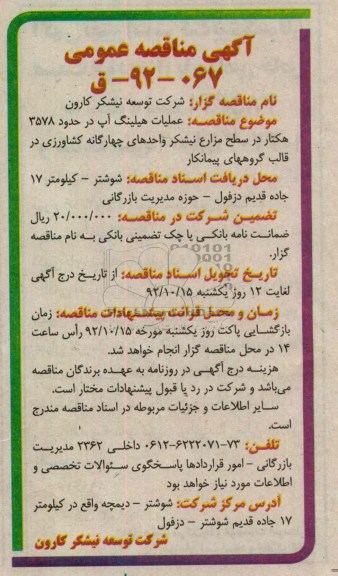 آگهی مناقصه عمومی
۰۶۷-۹۲- ق
نام مناقصه گزار: شرکت توسعه نیشکر کارون
موضوع مناقصه: عملیات هیلینگ آپ در حدود ۳۵۷۸
هکتار در سطح مزارع نیشکر واحدهای چهارگانه کشاورزی در
قالب گروههای پیمانکار
محل دریافت اسناد مناقصه: شوشتر - کیلومتر ۱۷
جاده قدیم دزفول - حوزه مدیریت بازرگانی
تضمین شرکت در مناقصه: ۲۰/۰۰۰/۰۰۰ ریال
ضمانت نامه بانکی یا چک تضمینی بانکی به نام مناقصه
گزار.
تاریخ تحویل اسناد مناقصه: از تاریخ درج آگهی
لغایت ۱۲ روز یکشنبه ۹۲/۱۰/۱۵
زمان و محل قرائت پیشنهادات مناقصه: زمان
بازگشایی پاکت روز یکشنبه مورخه ۹۲/۱۰/۱۵ رأس ساعت
۱۴ در محل مناقصه گزار انجام خواهد شد.
هزینه درج آگهی در روزنامه به عهده برندگان مناقصه
می‌باشد و شرکت در رد یا قبول پیشنهادات مختار است.
سایر اطلاعات و جزئیات مربوطه در اسناد مناقصه مندرج
است.
تلفن: ۷۳-۶۲۲۲۰۷۱-۰۶۱۲ داخلی ۲۳۶۲ مدیریت
بازرگانی - امور قراردادها پاسخگوی سئوالات تخصصی و
اطلاعات مورد نیاز خواهد بود
آدرس مرکز شرکت: شوشتر - دیمچه واقع در کیلومتر
۱۷ جاده قدیم شوشتر - دزفول
شرکت توسعه نیشکر کارون